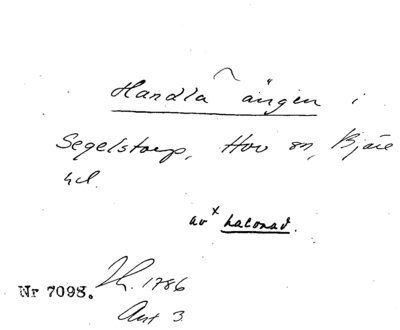 Handla ängen i
Segelstorp, Hov sn, Bjäre
hd.
av × halonad.
Nr 7098.
Th. 1786
Ant 3